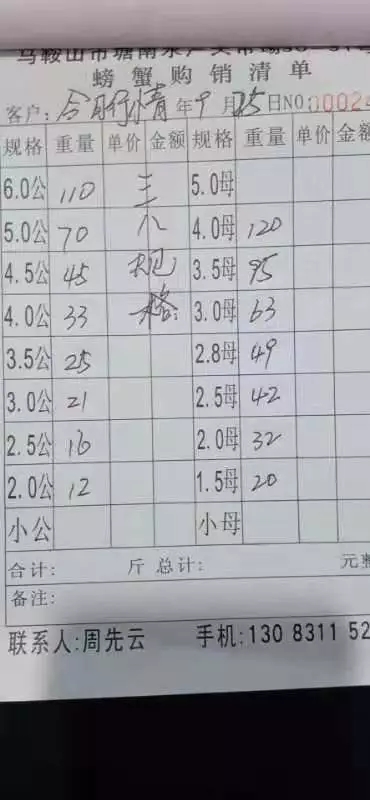 马鞍山市塘南水产大市场
螃蟹购销清单
客户: 今日行情 年9月25日 NO:00024
规格 重量 单价 金额 规格 重量 单价 金额
6.0公 110 5.0母
5.0公 70 4.0母 120
4.5公 45 规 3.5母 95
4.0公 33 格: 3.0母 63
3.5公 25 2.8母 49
3.0公 21 2.5母 42
2.5公 16 2.0母 32
2.0公 12 1.5母 20
小公 小母
合计: 斤 总计: 元整
备注:
联系人:周先云 手机:130 8311 52